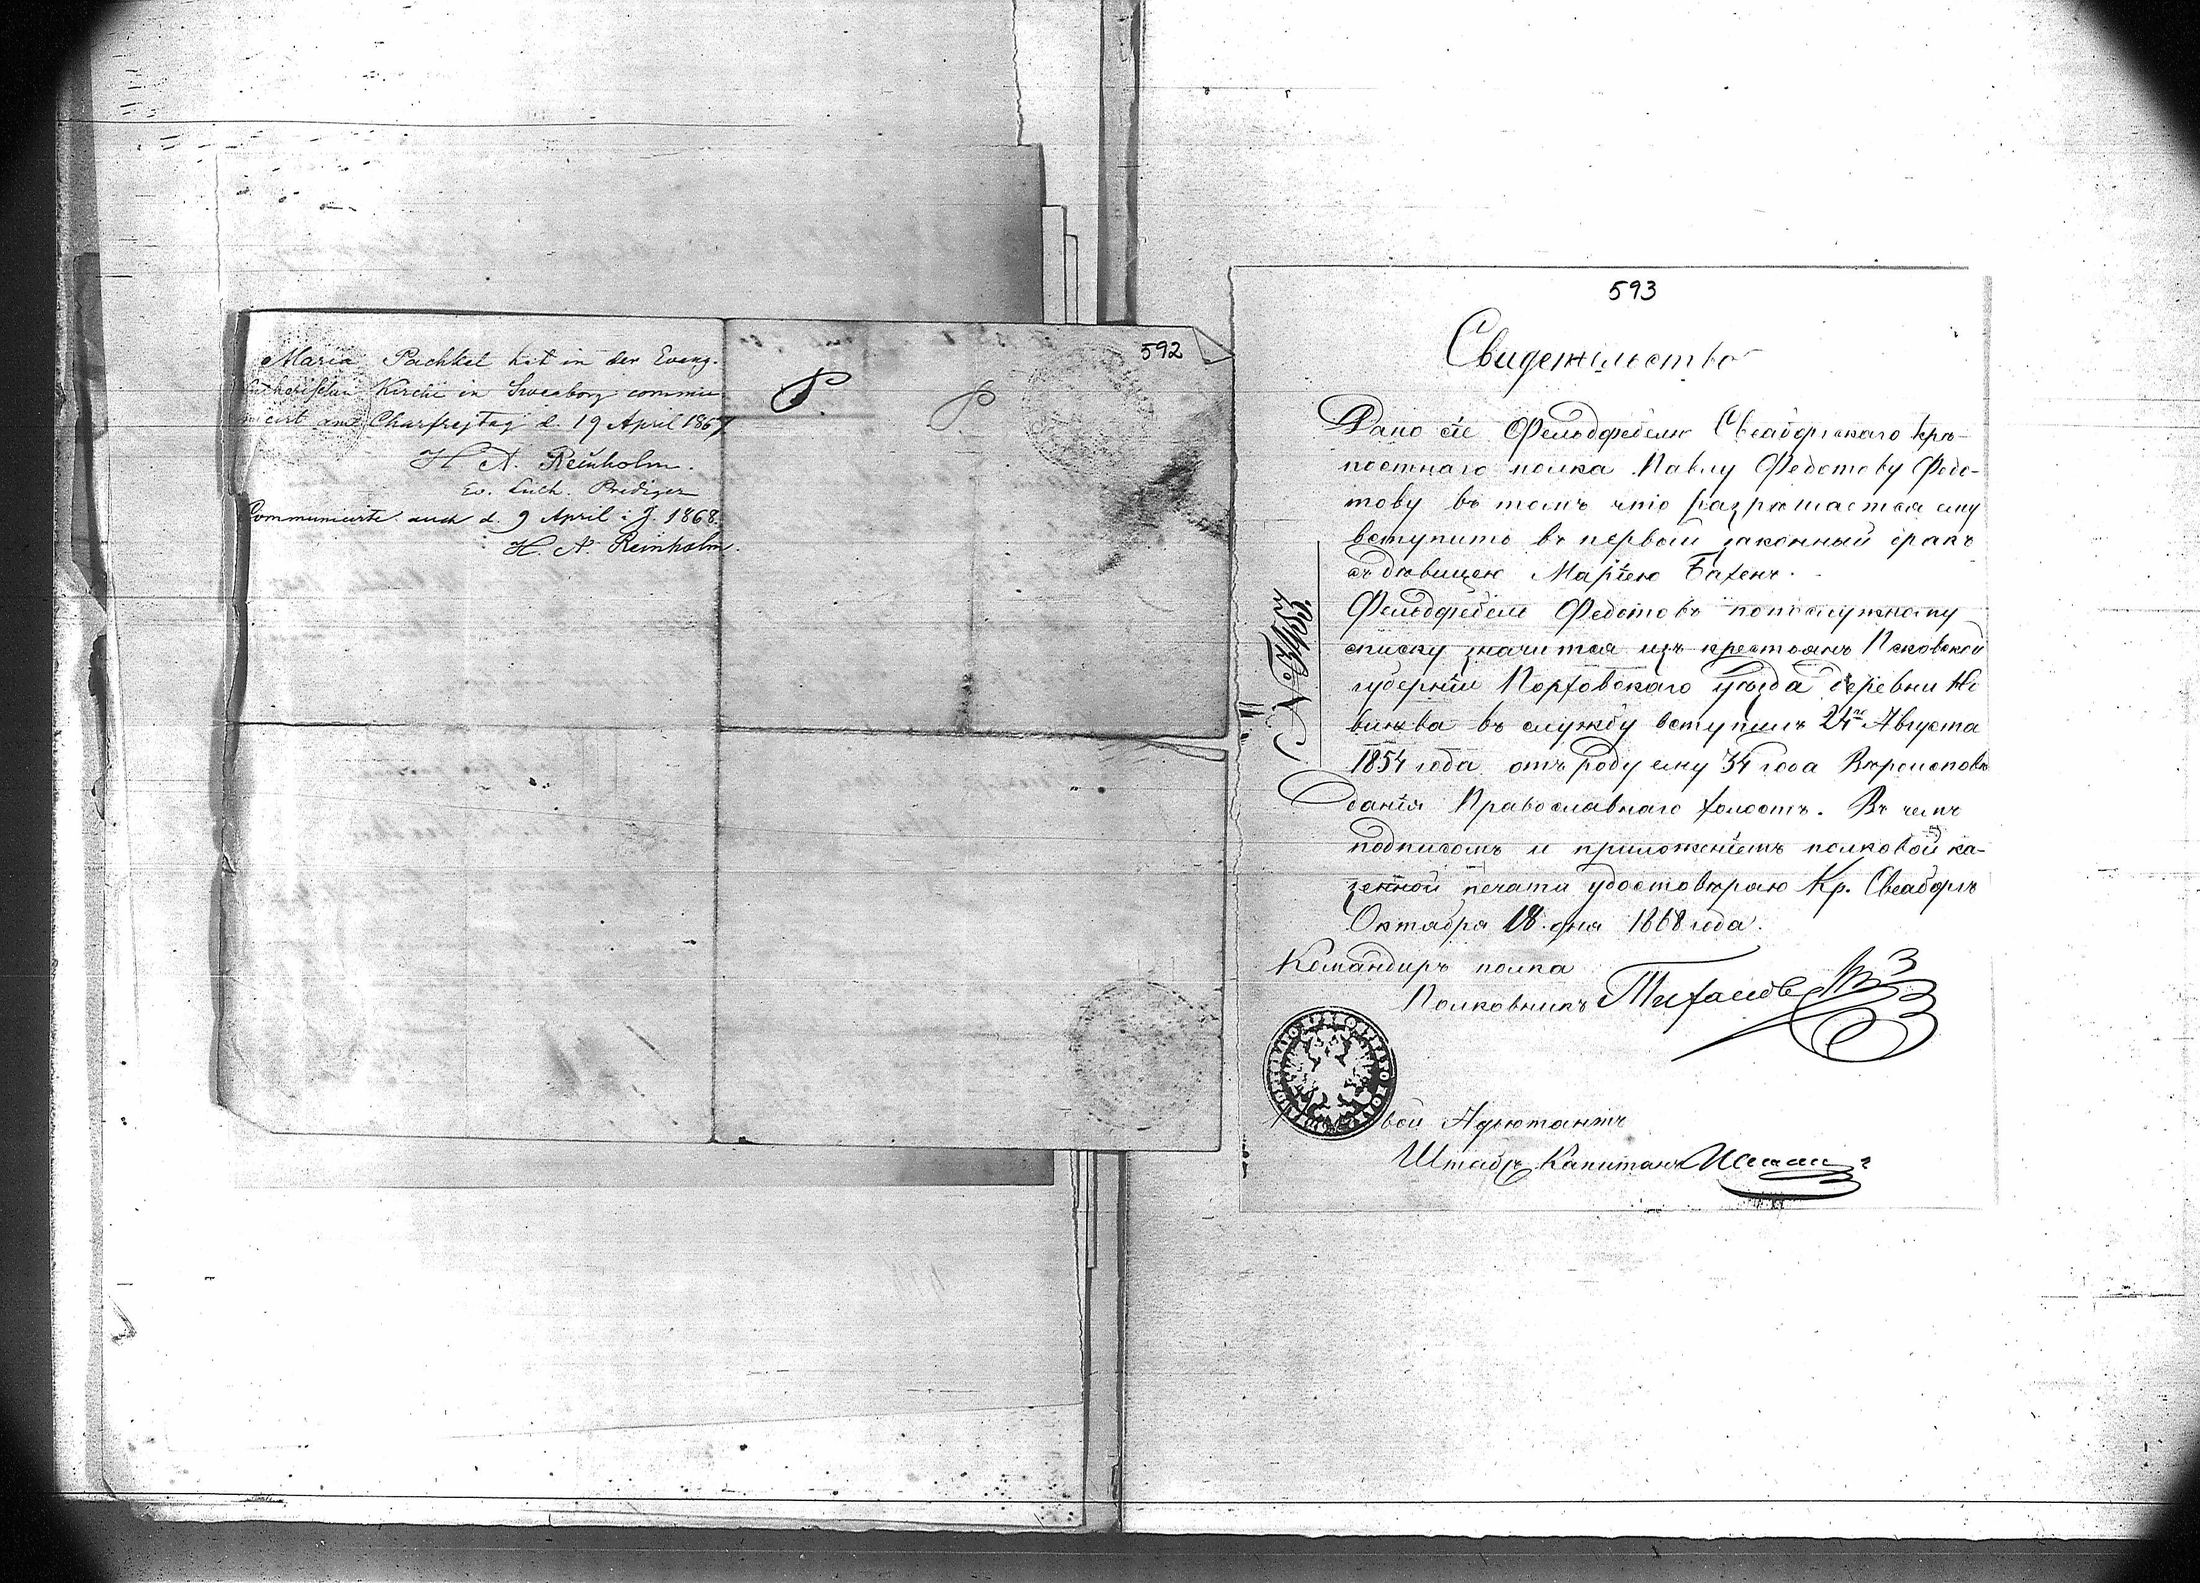 592
Maria Pachkel hat in der Evang.
Lutherischen Kirche in Sveaborg commu
niciert am Charfreytag d. 19 April 1867
H A. Reinholm.
Ev. Luth. Prediger
Communicirte auch d. 9 April i. J. 1868.
H. A. Reinholm.
593
Свидетельство
Дано сіе Фельдфебелю Свеаборгскаго крѣ-
постнаго полка Павлу Федотову Федо-
тову въ томъ что разрѣшается ему
вступить въ первый законный бракъ
съ дѣвицею Маріею Бахенъ.
Фельдфебель Федотовъ по послужному
списку значится изъ крестьянъ Псковской
губерніи Порховскаго уѣзда деревни
въ службу вступилъ 24го Августа
1854 года отъ роду ему 34 года Вѣроисповѣ
данія Православнаго холостъ. Въ чемъ
подписомъ и приложеніемъ полковой ка-
зенной печати удостовѣряю Кр. Свеаборгъ
Октября 18 дня 1868 года.
Командиръ полка
Полковникъ
№ 3453.
вой Адъютантъ
Штабсъ Капитанъ